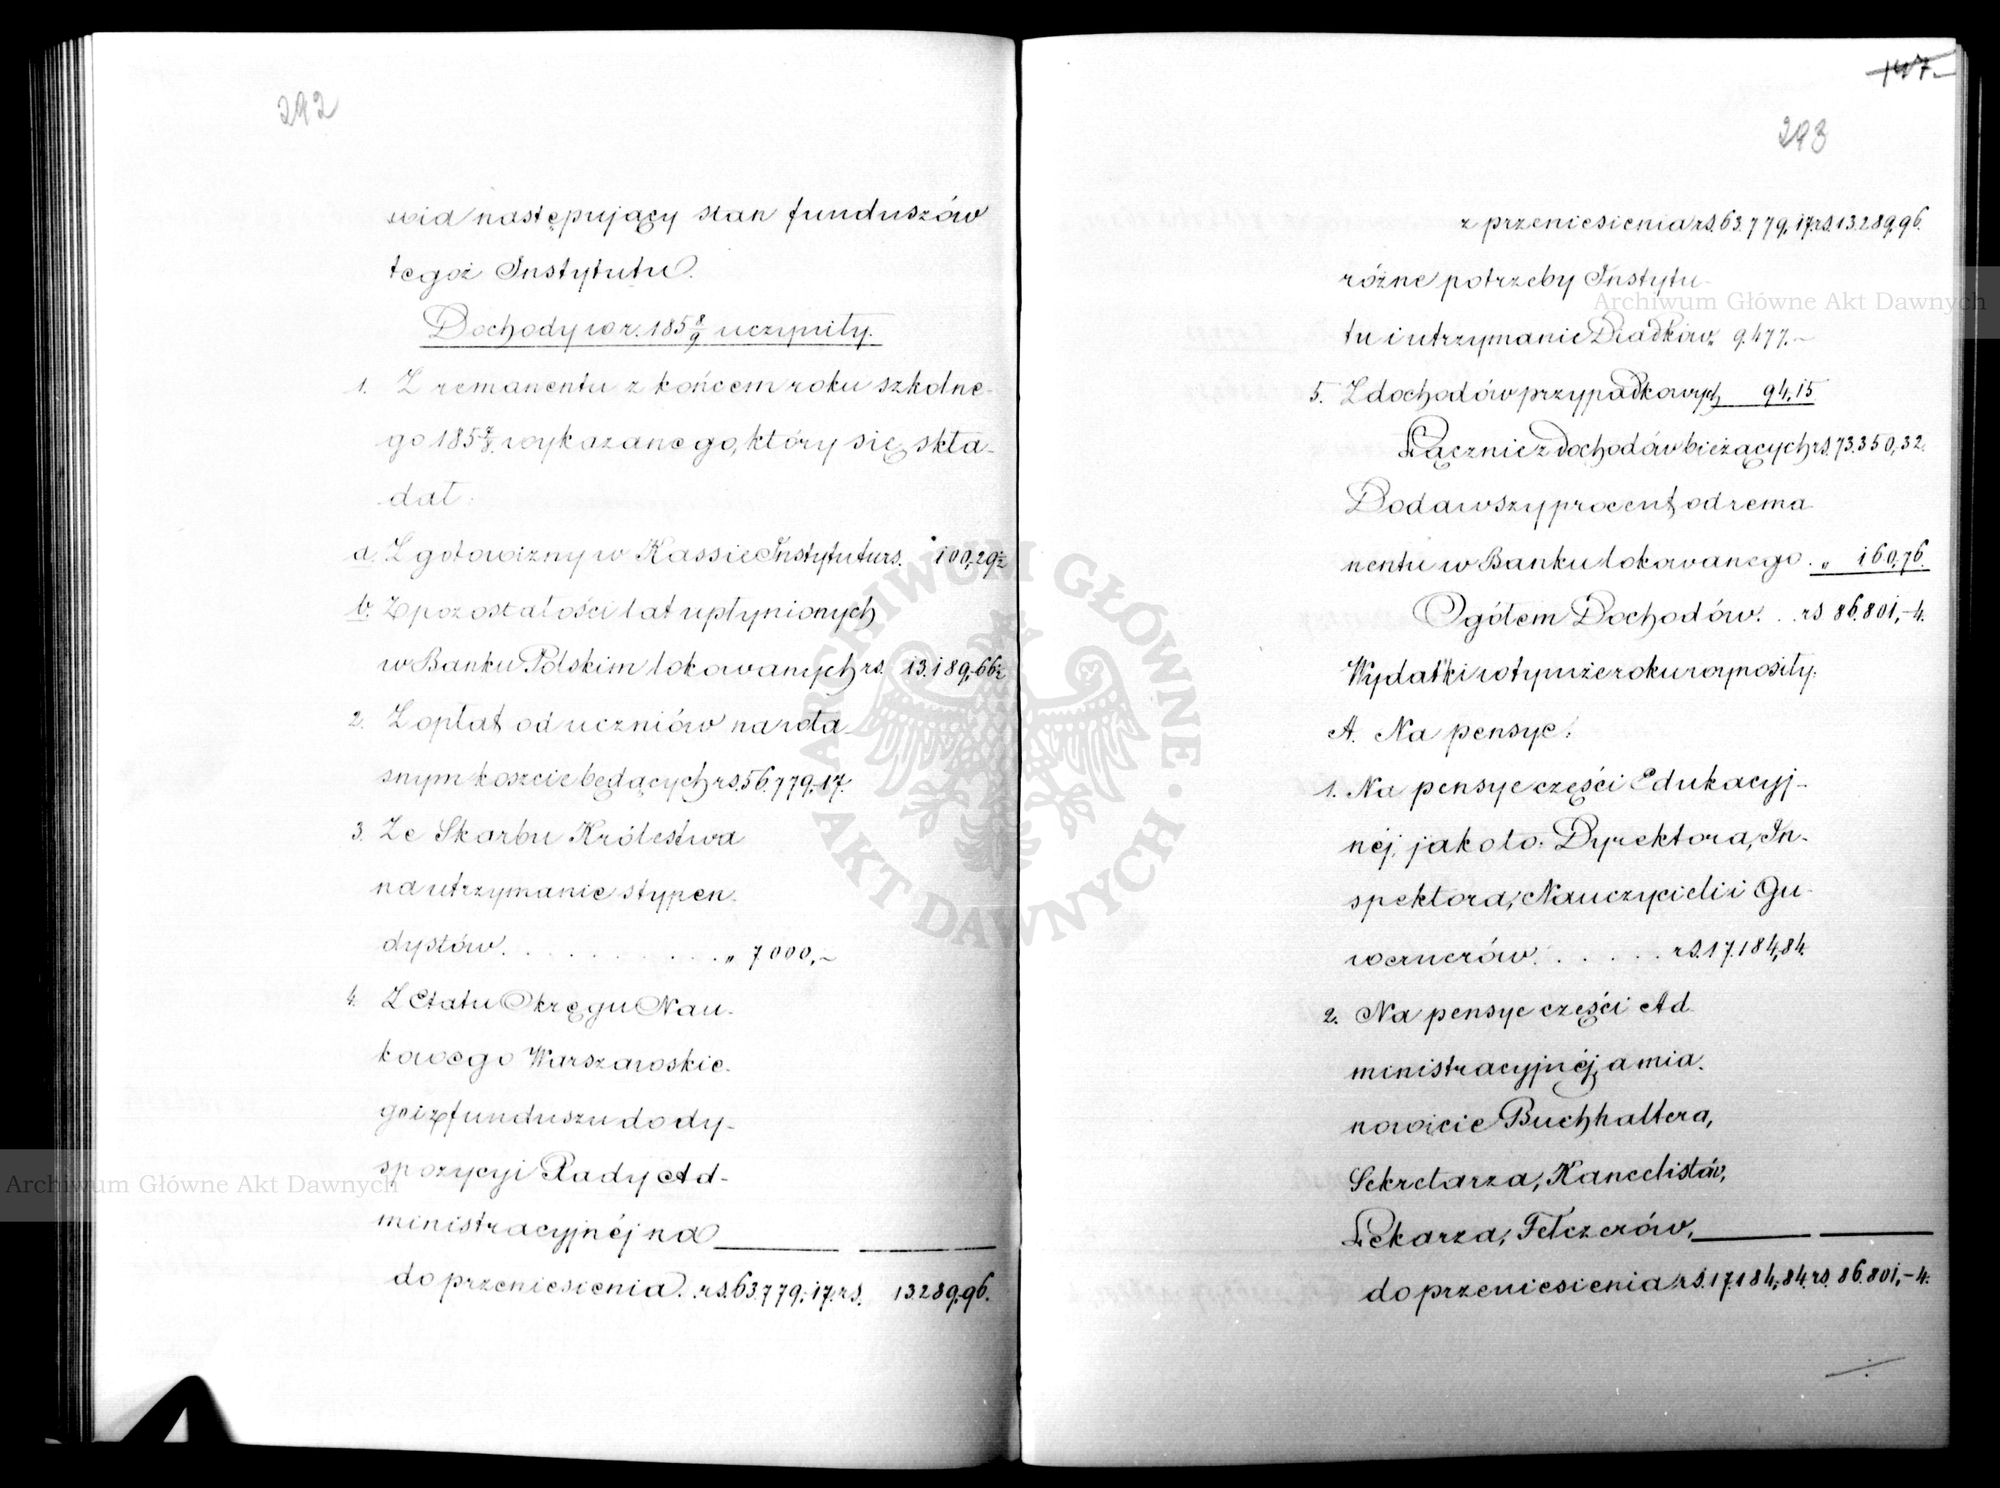 292
wia następujący stan funduszów
tegoż Instytutu.
Dochody w r. 185 8/9 uczyniły.
1. Z remanentu z końcem roku szkolne-
go 185 7/8 wykazanego, który się skła-
dał:
a. Z gotowizny w Kassie Instytutu rs. 100,29½
b. Z pozostałości lat upłynionych
w Banku Polskim lokowanych rs. 13.189,66½
2. Z opłat od uczniów na wła-
snym koszcie będących rs. 56.779,17.
3. Ze Skarbu Królestwa
na utrzymanie stypen-
dystów . . . . . . . . . . „ 7000,–
4. Z Etatu Okręgu Nau-
kowego Warszawskie-
go i z funduszu do dy-
spozycyi Rady Ad-
ministracyjnéj na
do przeniesienia rs. 63.779,17. rs. 13.289,96.
147.
293
z przeniesienia rs. 63.779,17. rs. 13.289,96.
różne potrzeby Instytu-
tu i utrzymanie Dziadków „ 9.477.–
5. Z dochodów przypadkowych 94,15
Łącznie z dochodów bieżących rs. 73.350,32.
Dodawszy procent od rema
nentu w Banku lokowanego . „ 160,76.
Ogółem Dochodów. . . rs 86.801,–4.
Wydatki w tymże roku wynosiły:
A. Na pensye:
1. Na pensye części Edukacyj-
néj, jako to: Dyrektora, In-
spektora, Nauczycieli i Gu-
wernerów . . . . . . rs. 17.184,84.
2. Na pensye części Ad
ministracyjnéj, a mia-
nowicie Buchhaltera,
Sekretarza, Kancelistów,
Lekarza, Felczerów,
do przeniesienia rs. 17.184,84. rs. 86.801,–4.
Archiwum Główne Akt Dawnych
Archiwum Główne Akt Dawnych
ARCHIWUM GŁÓWNE AKT DAWNYCH